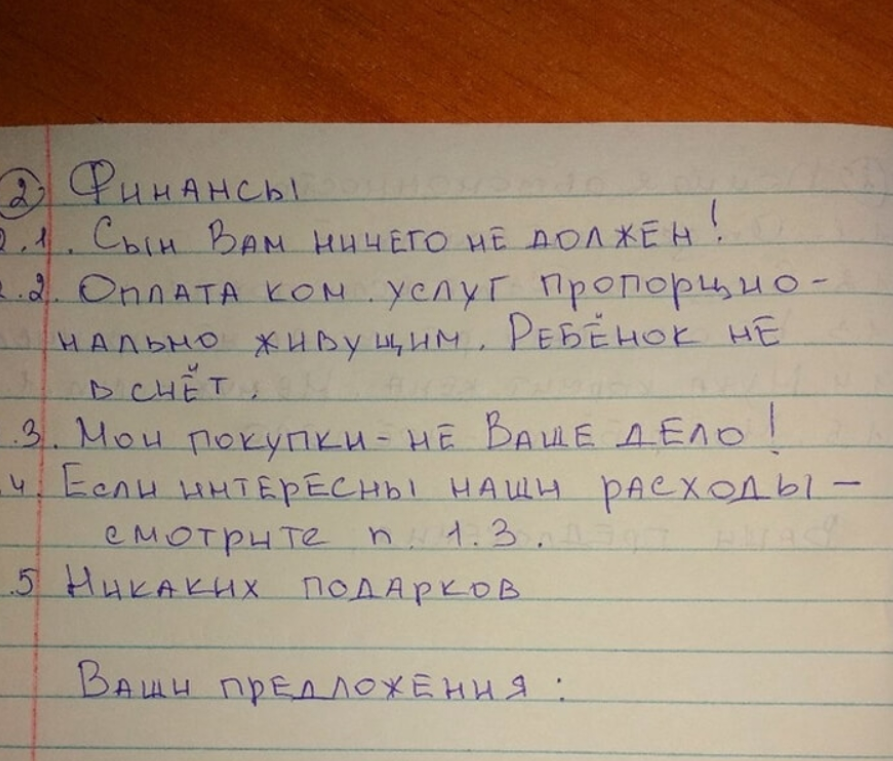 2 Финансы
2.1. Сын Вам ничего не должен!
2.2. Оплата ком. услуг пропорцио-
нально живущим. Ребёнок не
в счёт.
.3. Мои покупки - не Ваше дело!
.4. Если интересны наши расходы -
смотрите п. 1.3.
.5 Никаких подарков
Ваши предложения: